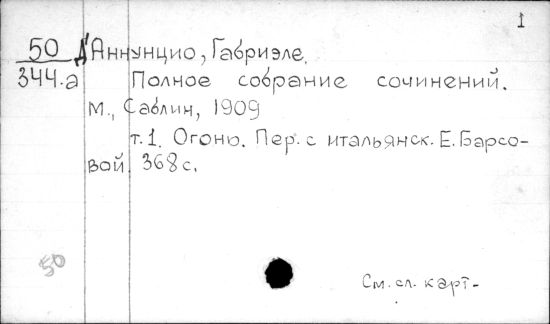 1
50
344.а
Д'Аннунцио, Габриэле.
Полное собрание сочинений.
М., Саблин, 1909
т.1. Огонь. Пер. с итальянск. Е. Барсо-
вой. 368 с.
50
См. сл. карт-